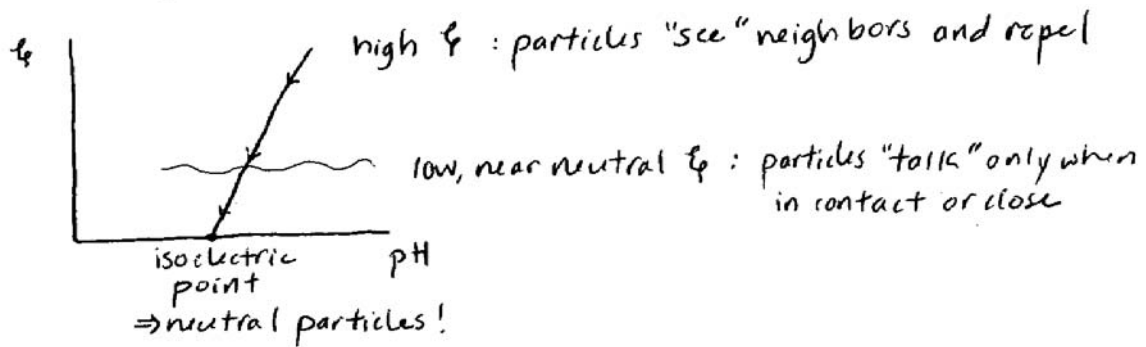 ξ
high ξ : particles "see" neighbors and repel
low, near neutral ξ : particles "talk" only when
in contact or close
isoelectric
point
pH
⇒ neutral particles!